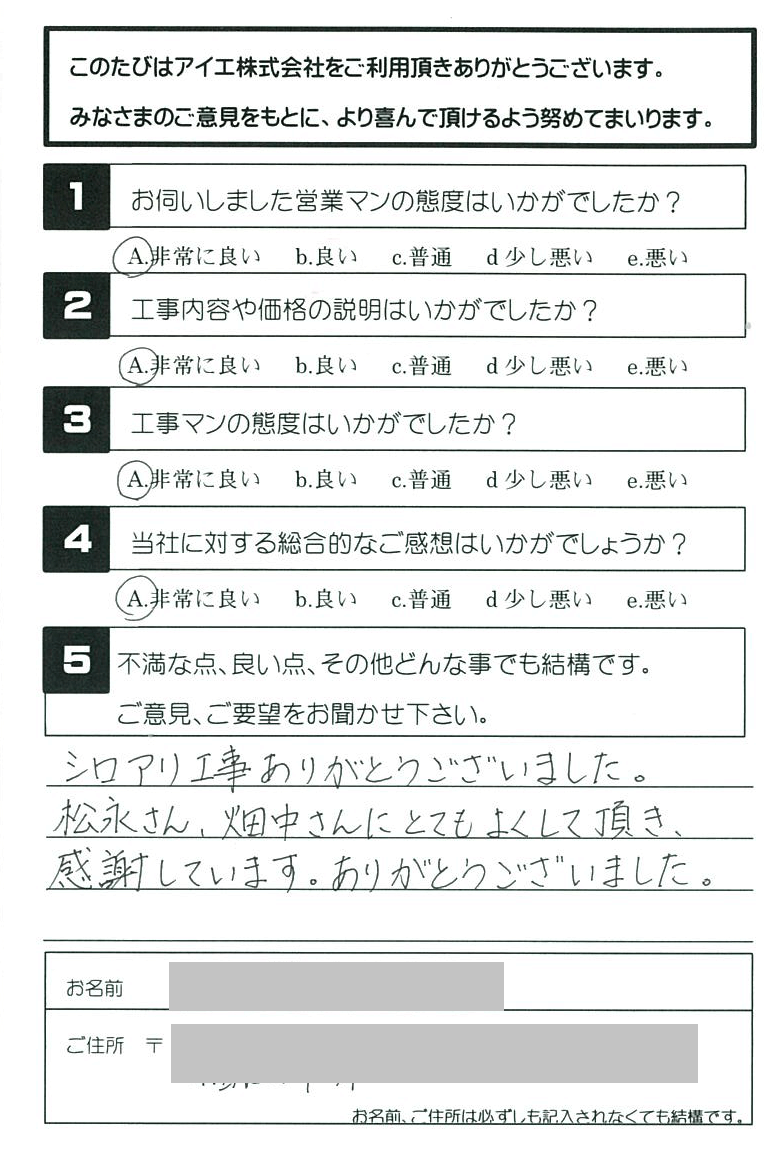 このたびはアイエ株式会社をご利用頂きありがとうございます。
みなさまのご意見をもとに、より喜んで頂けるよう努めてまいります。
1 お伺いしました営業マンの態度はいかがでしたか？
A.非常に良い b.良い c.普通 d少し悪い e.悪い
2 工事内容や価格の説明はいかがでしたか？
A.非常に良い b.良い c.普通 d少し悪い e.悪い
3 工事マンの態度はいかがでしたか？
A.非常に良い b.良い c.普通 d少し悪い e.悪い
4 当社に対する総合的なご感想はいかがでしょうか？
A.非常に良い b.良い c.普通 d少し悪い e.悪い
5 不満な点、良い点、その他どんな事でも結構です。
ご意見、ご要望をお聞かせ下さい。
シロアリ工事ありがとうございました。
松永さん、畑中さんにとてもよくして頂き、
感謝しています。ありがとうございました。
お名前
ご住所 〒
お名前、ご住所は必ずしも記入されなくても結構です。